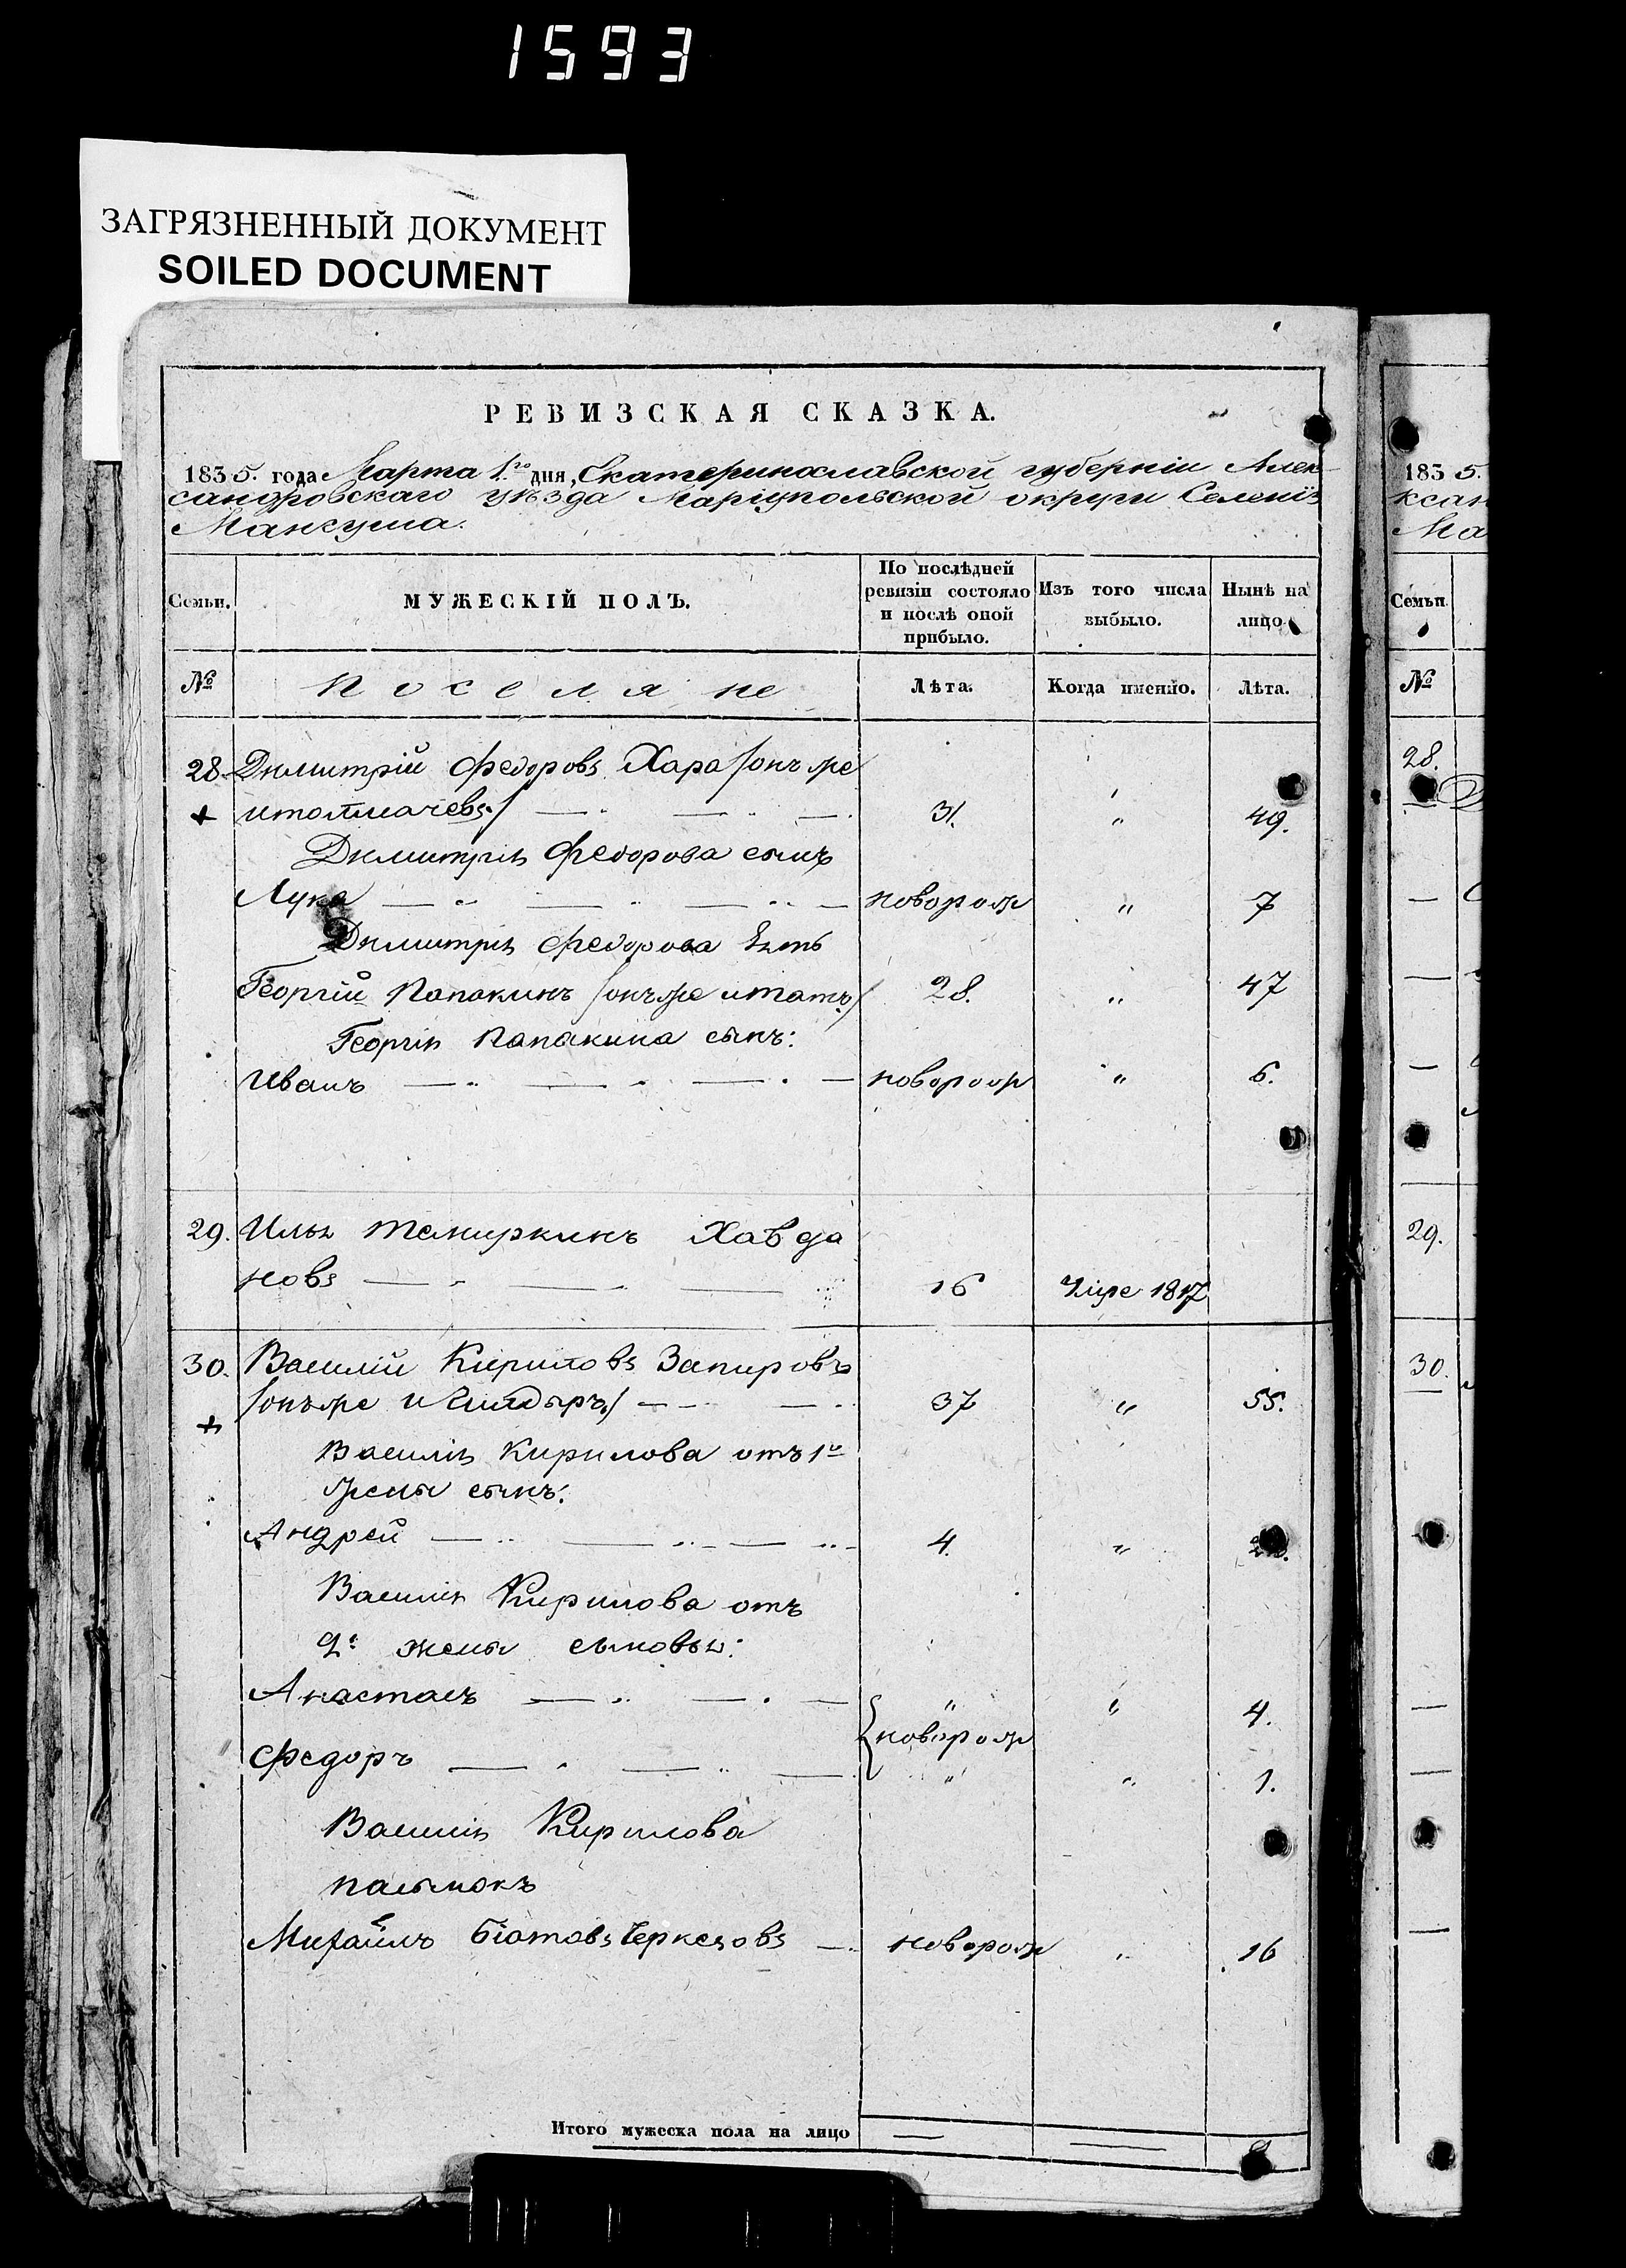 1593
ЗАГРЯЗНЕННЫЙ ДОКУМЕНТ
SOILED DOCUMENT
РЕВИЗСКАЯ СКАЗКА.
1835. года Марта 1го дня, Екатеринославской губерніи Алек-
сандровскаго уѣзда Маріупольской округи Селенія
Мангуша.
Семьи.
МУЖЕСКІЙ ПОЛЪ.
По послѣдней ревизіи состояло и послѣ оной прибыло.
Изъ того числа выбыло.
Нынѣ на лицо
№ Поселяне Лѣта. Когда именно. Лѣта.
28. Димитрій Федоровъ Хара /онъ же
и толмачевъ/ 31. " 49.
Димитрія Федорова сынъ
Лука новорож " 7
Димитрія Федорова зять
Георгій Папакинъ /онъ же и татъ/ 28. " 47
Георгія Папакина сынъ:
Иванъ новорож " 6.
29. Илья Темиркинъ Хавда
новъ 16 Умре 1817
30. Василій Кириловъ Запировъ
/онъ же и / 37 " 55.
Василія Кирилова отъ 1й
жены сынъ:
Андрей 4. "
Василія Кирилова отъ
2й жены сыновья:
Анастасъ " " 4.
новорож
Федоръ " " 1.
Василія Кирилова
пасынокъ
Михаилъ Біатовъ Черкезовъ новорож " 16
Итого мужеска пола на лицо — — 8
1835.
ксан
Ма
Семьи
№
28.
29.
30.